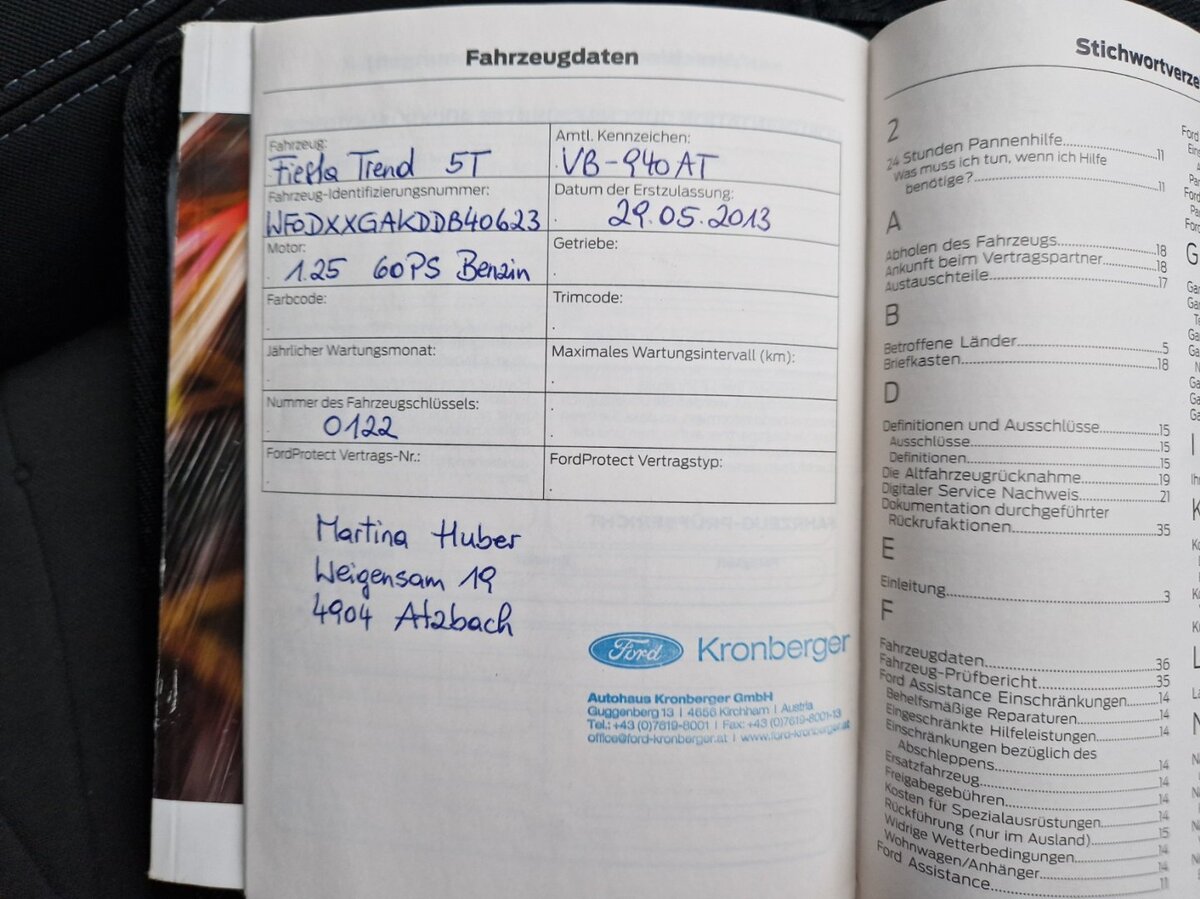 Fahrzeugdaten
Fahrzeug:
Fiesta Trend 5T
Amtl. Kennzeichen:
VB-940AT
Fahrzeug-Identifizierungsnummer:
WF0DXXGAKDDB40623
Datum der Erstzulassung:
29.05.2013
Motor:
1.25 60PS Benzin
Getriebe:
Farbcode:
Trimcode:
Jährlicher Wartungsmonat:
Maximales Wartungsintervall (km):
Nummer des Fahrzeugschlüssels:
0122
FordProtect Vertrags-Nr.:
FordProtect Vertragstyp:
Martina Huber
Weigensam 19
4904 Atzbach
Ford Kronberger
Autohaus Kronberger GmbH
Guggenberg 13 | 4656 Kirchham | Austria
Tel.: +43 (0)7619-8001 | Fax: +43 (0)7619-8001-13
office@ford-kronberger.at | www.ford-kronberger.at
Stichwortverze
2
24 Stunden Pannenhilfe 11
Was muss ich tun, wenn ich Hilfe
benötige? 11
A
Abholen des Fahrzeugs 18
Ankunft beim Vertragspartner 18
Austauschteile 17
B
Betroffene Länder 5
Briefkasten 18
D
Definitionen und Ausschlüsse 15
Ausschlüsse 15
Definitionen 15
Die Altfahrzeugrücknahme 19
Digitaler Service Nachweis 21
Dokumentation durchgeführter
Rückrufaktionen 35
E
Einleitung 3
F
Fahrzeugdaten 36
Fahrzeug-Prüfbericht 35
Ford Assistance Einschränkungen 14
Behelfsmäßige Reparaturen 14
Eingeschränkte Hilfeleistungen 14
Einschränkungen bezüglich des
Abschleppens 14
Ersatzfahrzeug 14
Freigabegebühren 14
Kosten für Spezialausrüstungen 14
Rückführung (nur im Ausland) 15
Widrige Wetterbedingungen 14
Wohnwagen/Anhänger 14
Ford Assistance 11